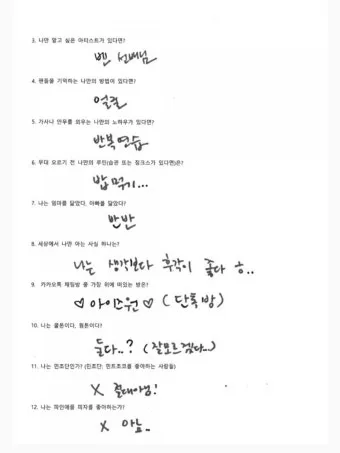 3. 나만 알고 싶은 아티스트가 있다면?
벤 선배님
4. 팬들을 기억하는 나만의 방법이 있다면?
얼굴
5. 가사나 안무를 외우는 나만의 노하우가 있다면?
반복연습
6. 무대 오르기 전 나만의 루틴(습관 또는 징크스가 있다면)은?
밥 먹기...
7. 나는 엄마를 닮았다, 아빠를 닮았다?
반반
8. 세상에서 나만 아는 사실 하나는?
나는 생각보다 후각이 좋다 ㅎ..
9. 카카오톡 채팅방 중 가장 위에 떠있는 방은?
♡아이즈원♡ (단톡방)
10. 나는 쿨톤이다, 웜톤이다?
둘다..? (잘모르겠다...)
11. 나는 민초단인가? (민초단: 민트초코를 좋아하는 사람들)
X 절대아님!
12. 나는 파인애플 피자를 좋아하는가?
X 아뇨..